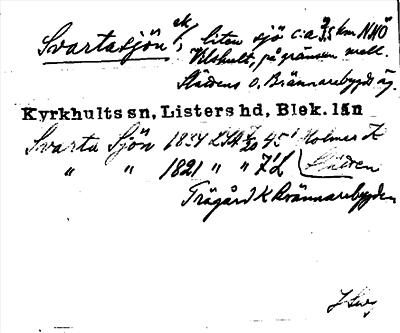 Svartasjön ek/, liten sjö c:a 3,5 km NNÖ
Vilshult, på gränsen mell.
Slädens o. Brännarebygds äg.
Kyrkhults sn, Listers hd, Blek. län
Svarta Sjön 1834 LSA 45 Holmes K
" " 1821 " " 7'L Släden
Trägård K Brännarebygden